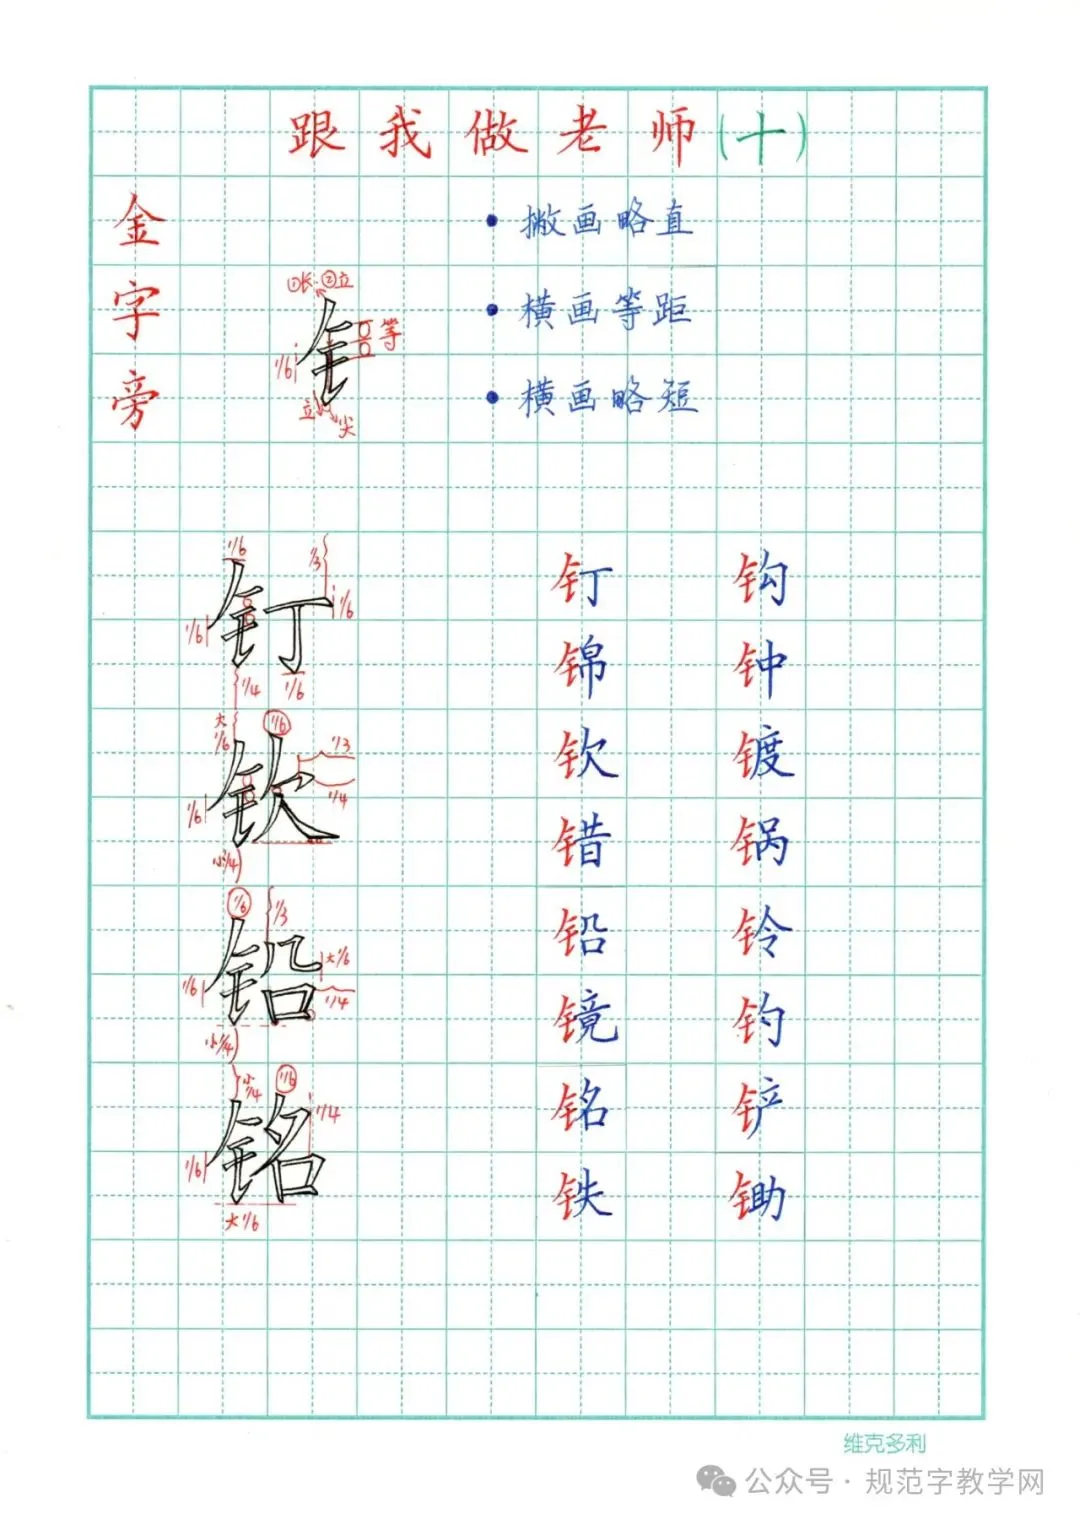 跟我做老师(十)
金字旁
• 撇画略直
• 横画等距
• 横画略短
①长 ②立
钅
等
1/6
立
尖
钉 钩
锦 钟
钦 镀
错 锅
铅 铃
镜 钓
铭 铲
铁 锄
1/6 1/3
钉
1/6
1/6
1/4 1/6
大1/6 1/6
1/3
钦
1/6
1/4
小1/4
1/6 1/3
铅
大1/6
1/6
1/4
小1/4
小1/4 1/6
1/4
铭
1/6
大1/6
维克多利
公众号 · 规范字教学网